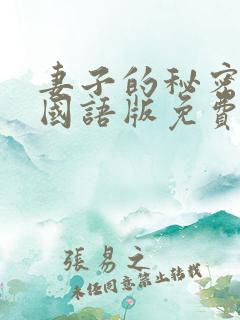 妻子的秘密
國語版免費
張易之
未經同意禁止轉載